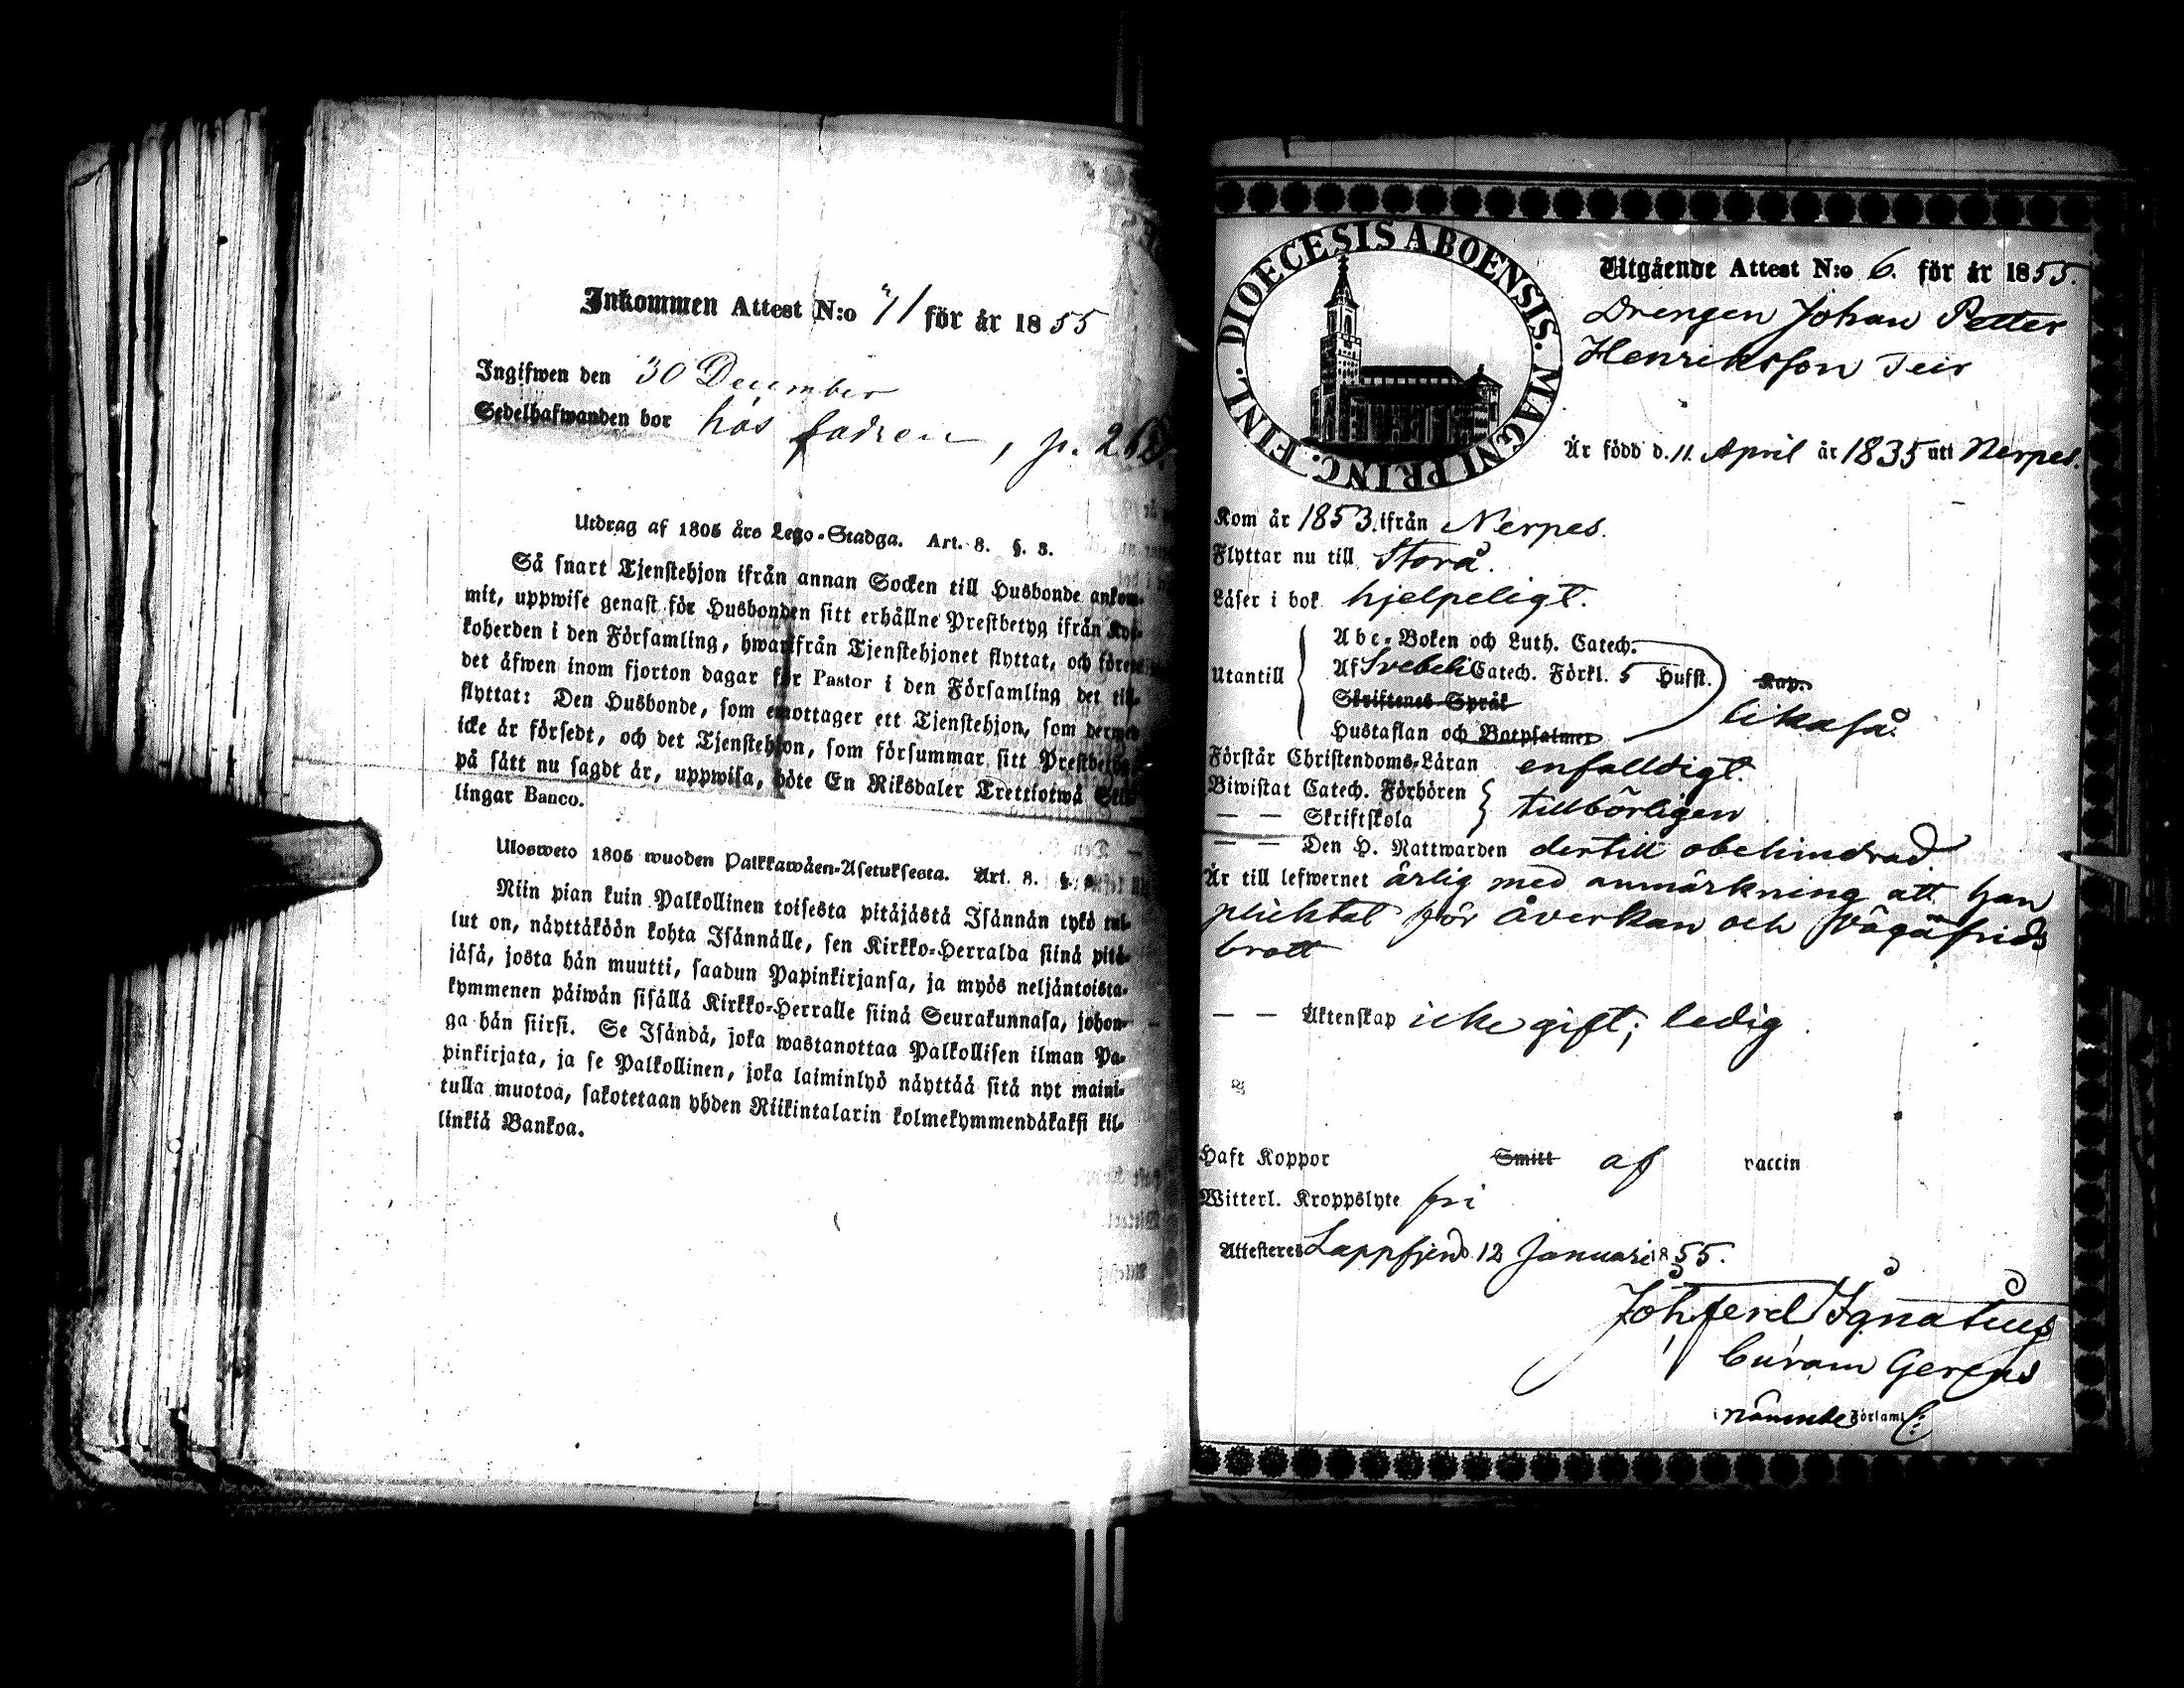 Inkommen Attest N:o 71 för år 1855
Ingifwen den 30 December
Sedelhafwanden bor hos fadren, p. 262.
Utdrag af 1805 års Lego-Stadga. Art. 8. §. 3.
Så snart Tjenstehjon ifrån annan Socken till Husbonde ankom-
mit, uppwise genast för Husbonden sitt erhållne Prestbetyg ifrån Kyr-
koherden i den Församling, hwarifrån Tjenstehjonet flyttat, och förete
det äfwen inom fjorton dagar för Pastor i den Församling det till-
flyttat: Den Husbonde, som emottager ett Tjenstehjon, som dermed
icke är försedt, och det Tjenstehjon, som försummar sitt Prestbetyg,
på sätt nu sagdt är, uppwisa, böte En Riksdaler Trettiotwå Skil-
lingar Banco.
Ulosweto 1805 wuoden Palkkawäen-Asetuksesta. Art. 8. §. 3.
Niin pian kuin Palkollinen toisesta pitäjästä Isännän tykö tul-
lut on, näyttäköön kohta Isännälle, sen Kirkko-Herralda siinä pitä-
jäsä, josta hän muutti, saadun Papinkirjansa, ja myös neljäntoista-
kymmenen päiwän sisällä Kirkko-Herralle siinä Seurakunnasa, johon-
ga hän siirsi. Se Isändä, joka wastanottaa Palkollisen ilman Pa-
pinkirjata, ja se Palkollinen, joka laiminlyö näyttää sitä nyt maini-
tulla muotoa, sakotetaan yhden Riikintalarin kolmekymmendäkaksi kil-
linkiä Bankoa.
DIOECESIS ABOENSIS. MAGNI PRINC. FINL.
Utgående Attest N:o 6. för år 1855.
Drengen Johan Petter
Henriksson Teir
Är född d. 11 April år 1835 uti Nerpes.
Kom år 1853. ifrån Nerpes.
Flyttar nu till Storå.
Läser i bok hjelpeligt.
Utantill
Abc-Boken och Luth. Catech.
Af Svebelii Catech. Förkl. 5 Hufst. Kap.
Skriftenes Språk
Hustaflan och Botpsalmer
likaså.
Förstår Christendoms-Läran enfalldigt.
Biwistat Catech. Förhören
— — Skriftskola
tillbörligen
— — Den H. Nattwarden dertill obehindrad
Är till lefwernet ärlig med anmärkning att han
pliktat för åverkan och Vägafrids
brott
— — Äktenskap icke gift; ledig
Haft Koppor Smitt af vaccin
Witterl. Kroppslyte fri
Attesteres Lappfjerd 12 Januari 1855.
Joh. Ferd Ignatius
Curam Gerens
i nämnde Församl.